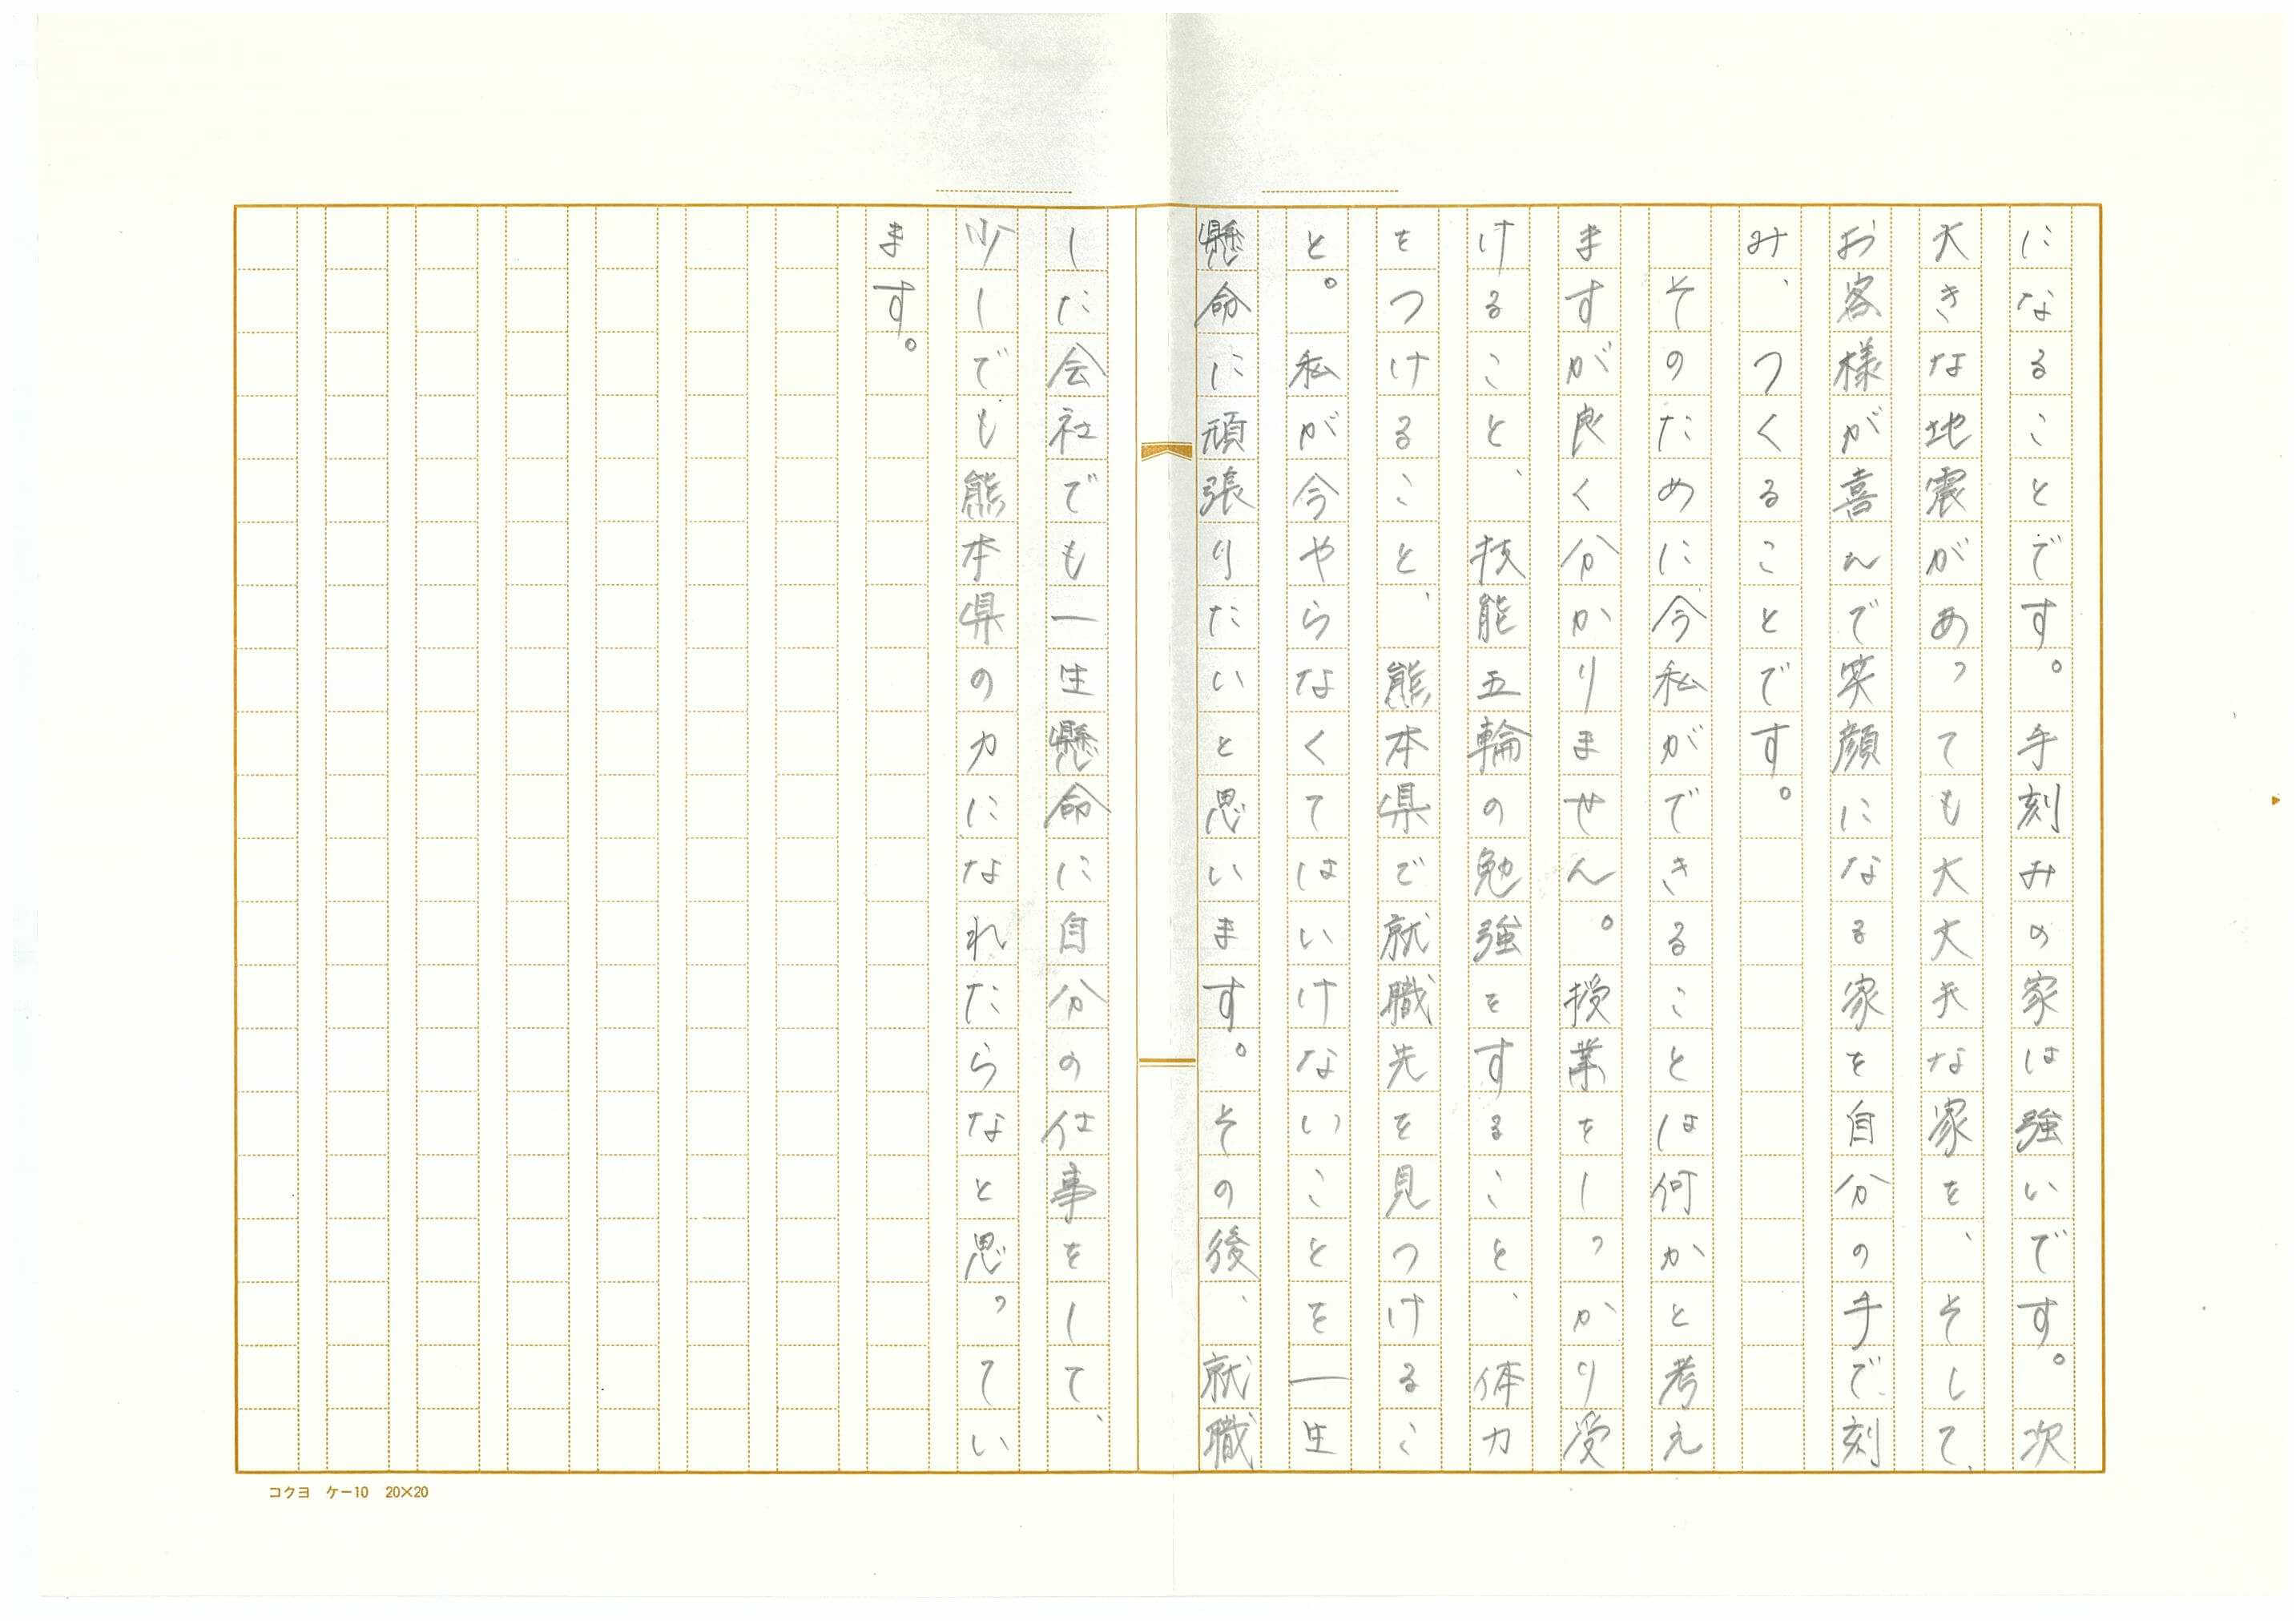 になることです。手刻みの家は強いです。次
大きな地震があっても大大夫な家を、そして、
お客様が喜んで笑顔になる家を自分の手で刻
み、つくることです。
そのために今私ができることは何かと考え
ますが良く分かりません。授業をしっかり受
けること、技能五輪の勉強をすること、体力
をつけること、熊本県で就職先を見つけるこ
と。私が今やらなくてはいけないことを一生
懸命に頑張りたいと思います。その後、就職
した会社でも一生懸命に自分の仕事をして、
少しでも熊本県の力になれたらなと思ってい
ます。
コクヨ ケー10 20×20